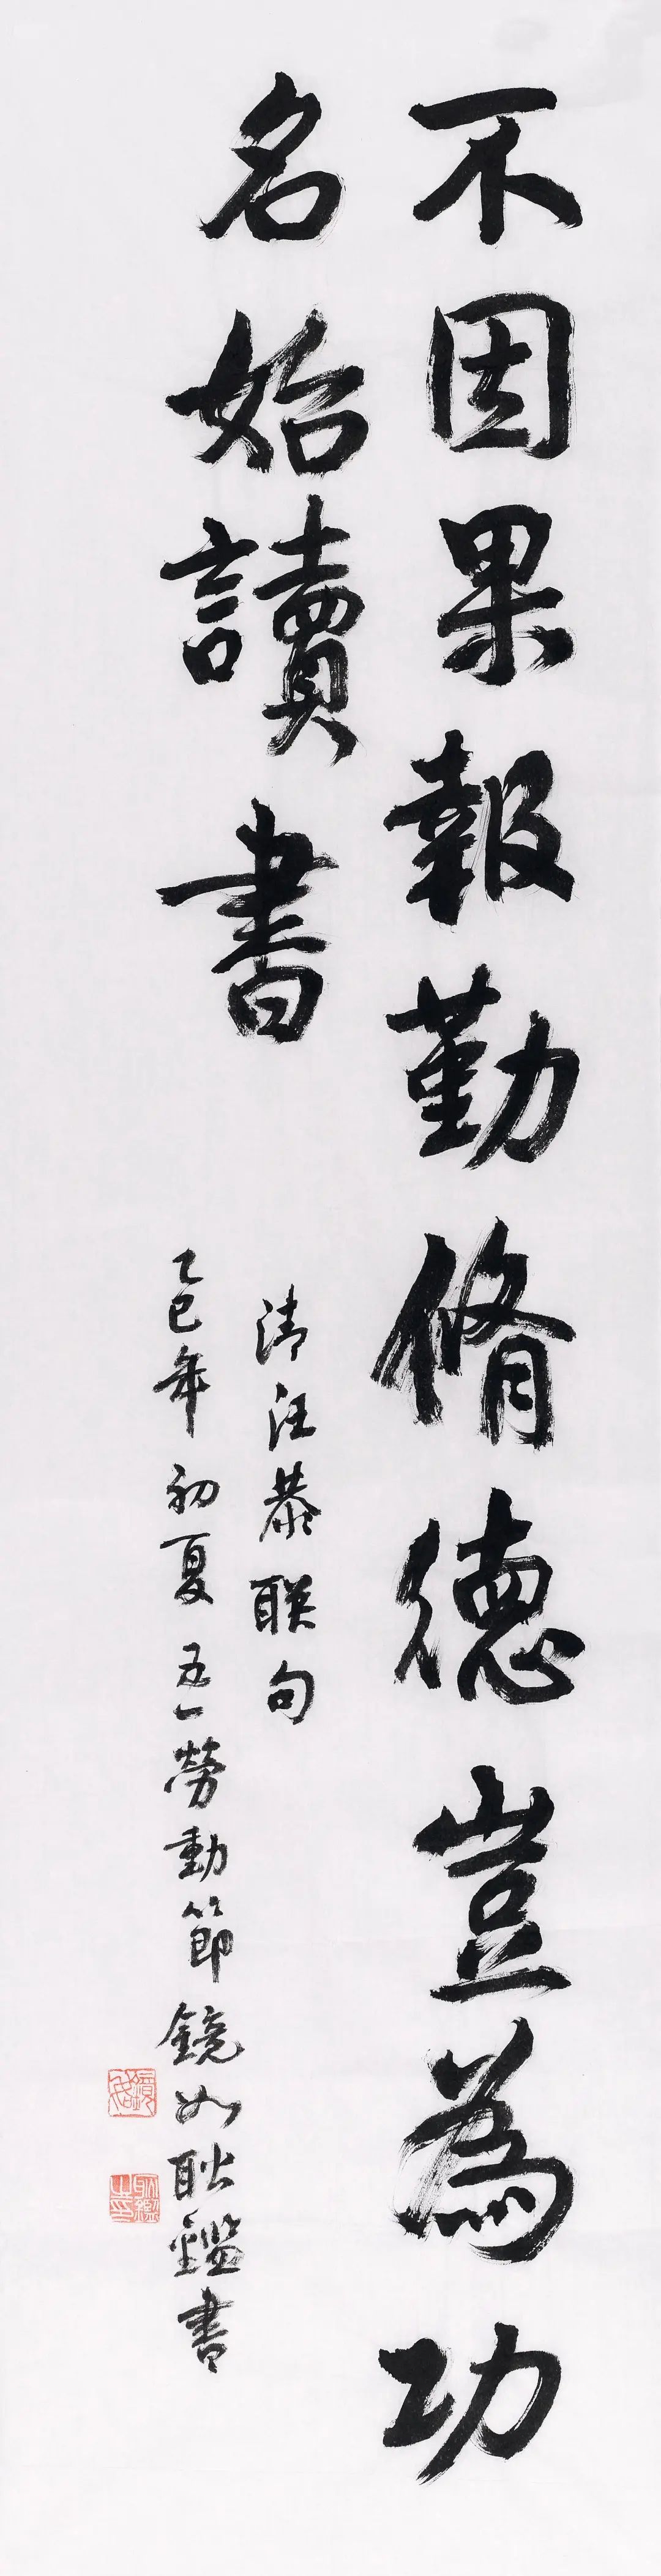 不因果報勤脩德豈為功
名始讀書
清汪恭联句
乙巳年初夏五一勞動節鏡如耿鑑書